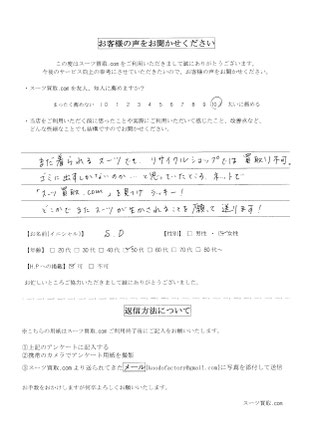 お客様の声をお聞かせください
この度はスーツ買取.comをご利用いただきまして誠にありがとうございます。
今後のサービス向上の参考にさせていただきたいので、お客様の声をお聞かせください。
・スーツ買取.comを友人、知人に薦めますか?
まったく薦めない (0 1 2 3 4 5 6 7 8 9 10) 大いに薦める
・当店をご利用いただく前に思ったことや実際にご利用いただいて感じたこと、改善求など、
どんな些細なことでも結構ですのでお聞かせください。
まだ着られるスーツでも、リサイクルショップでは買取り不可。
ゴミに出すしかないのか…と思っていたところ、ネットで
「スーツ買取.com」を見つけラッキー!
どこかでまたスーツが生かされることを願って送ります!
【お名前(イニシャル)】 S.O 【性別】 □ 男性 ・ ☑女性
【年齢】 □ 20代 □ 30代 □ 40代 ☑ 50代 □ 60代 □ 70代 □ 80代~
【H.Pへの掲載】 ☑ 可 □ 不可
お忙しいところご協力いただきまして誠にありがとうございました。
返信方法について
※こちらの用紙はスーツ買取.comご利用終了後にご記入をお願いいたします。
①上記のアンケートに記入する
②携帯のカメラでアンケート用紙を撮影
③スーツ買取.comより送られてきたメール[kosodefactory@gmail.com]に写真を添付して送信
お手数をおかけしますが何卒よろしくお願いいたします。
スーツ買取.com